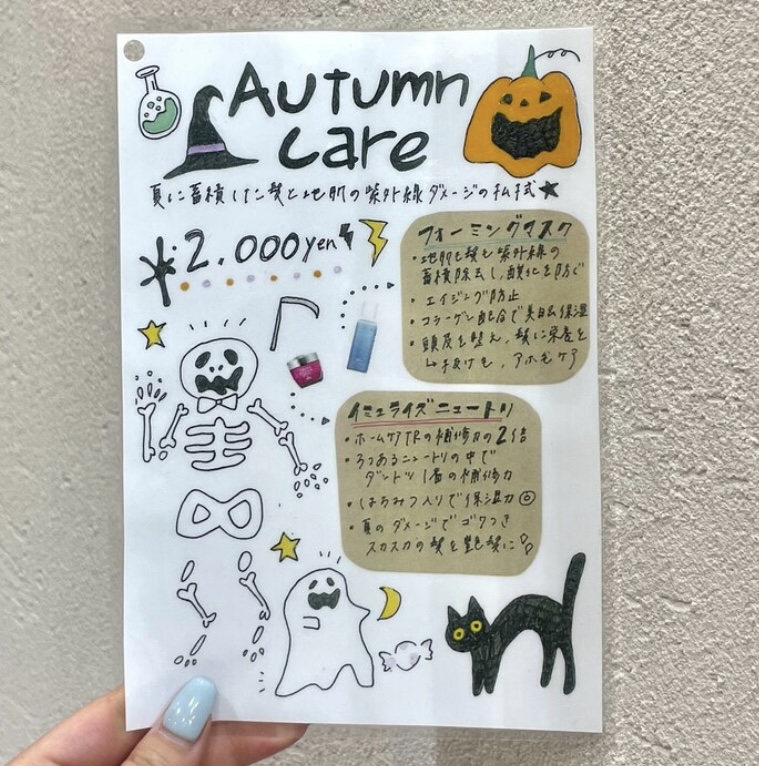 Autumn
care
夏に蓄積した髪と地肌の紫外線ダメージの払拭★
2.000yen
フォーミングマスク
・地肌と髪も紫外線の
蓄積除去し、酸化を防ぐ
・エイジング防止
・コラーゲン配合で美白&保湿
・頭皮を整え、髪に栄養を
↳手抜けも、アホ毛ケア
イミュライズニュートリ
・ホームケアTRの補修力の2倍
・3つあるニュートリの中で
ダントツ1番の補修力
・はちみつ入りで保湿力◎
・夏のダメージでゴワつき
スカスカの髪を艶髪に